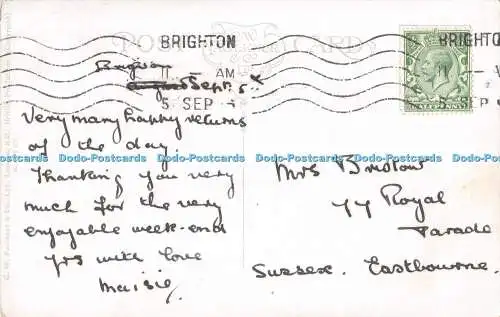 POST CARD
BRIGHTON
11 AM
5 SEP
BRIGHTON
11
5 SEP
HALFPENNY
Sept. 5
Very many happy returns
of the day.
Thanking you very
much for the very
enjoyable week-end
yrs with love
Maisie.
Mrs Bristow
77 Royal
Parade
Eastbourne.
Sussex.
Dodo-Postcards Dodo-Postcards Dodo-Postcards Dodo-Postcards Dodo-Postcards